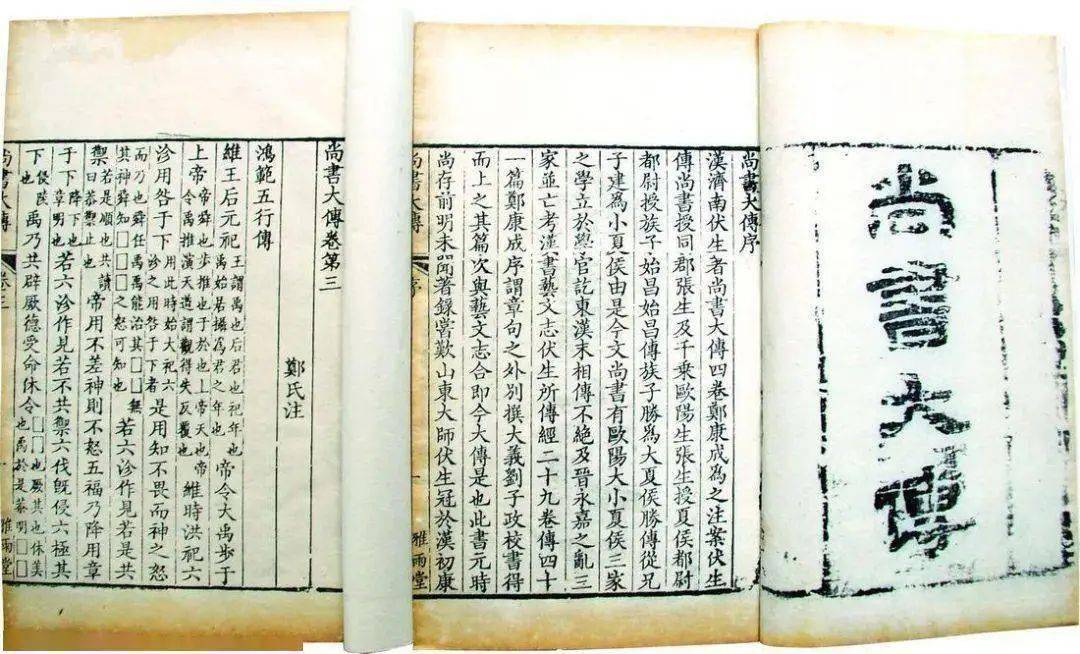 尚書大傳
尚書大傳序
漢濟南伏生者尚書大傳四卷鄭康成為之注案伏生
傳尚書授同郡張生及千乘歐陽生張生授夏侯都尉
都尉授族子始昌始昌傳族子勝為大夏侯勝傳從兄
子建為小夏侯由是今文尚書有歐陽大小夏侯三家
之學立於學官訖東漢末相傳不絕及晉永嘉之亂三
家並亡考漢書藝文志伏生所傳經二十九卷傳四十
一篇鄭康成序謂章句之外別撰大義劉子政校書得
而上之其篇次與藝文志合即今大傳是也此書元時
尚存前明未聞著錄嘗歎山東大師伏生冠於漢初康
尚書大傳
序
一
雅雨堂
尚書大傳卷第三
鄭氏注
鴻範五行傳
維王后元祀王謂禹也后君也祀年也禹始攝為君之年也帝令大禹步于
上帝帝舜也步推也于於也上帝天也帝令禹推演天道謂觀得失反覆也維時洪祀六
沴用咎于下用此時始大祀六沴之用咎于下者是用知不畏而神之怒
而乃也舜任禹禹能治其其神舜知□□之怒可知也無若六沴作見若是共
禦若是順也共讀曰恭禦止也帝用不差神則不怒五福乃降用章
于下降下也章明也若六沴作見若不共禦六伐既侵六極其
下侵陵也禹乃共辟厥德受命休令□□也厥其也休美也禹於是恭明□□
尚書大傳
卷三
一
雅雨堂